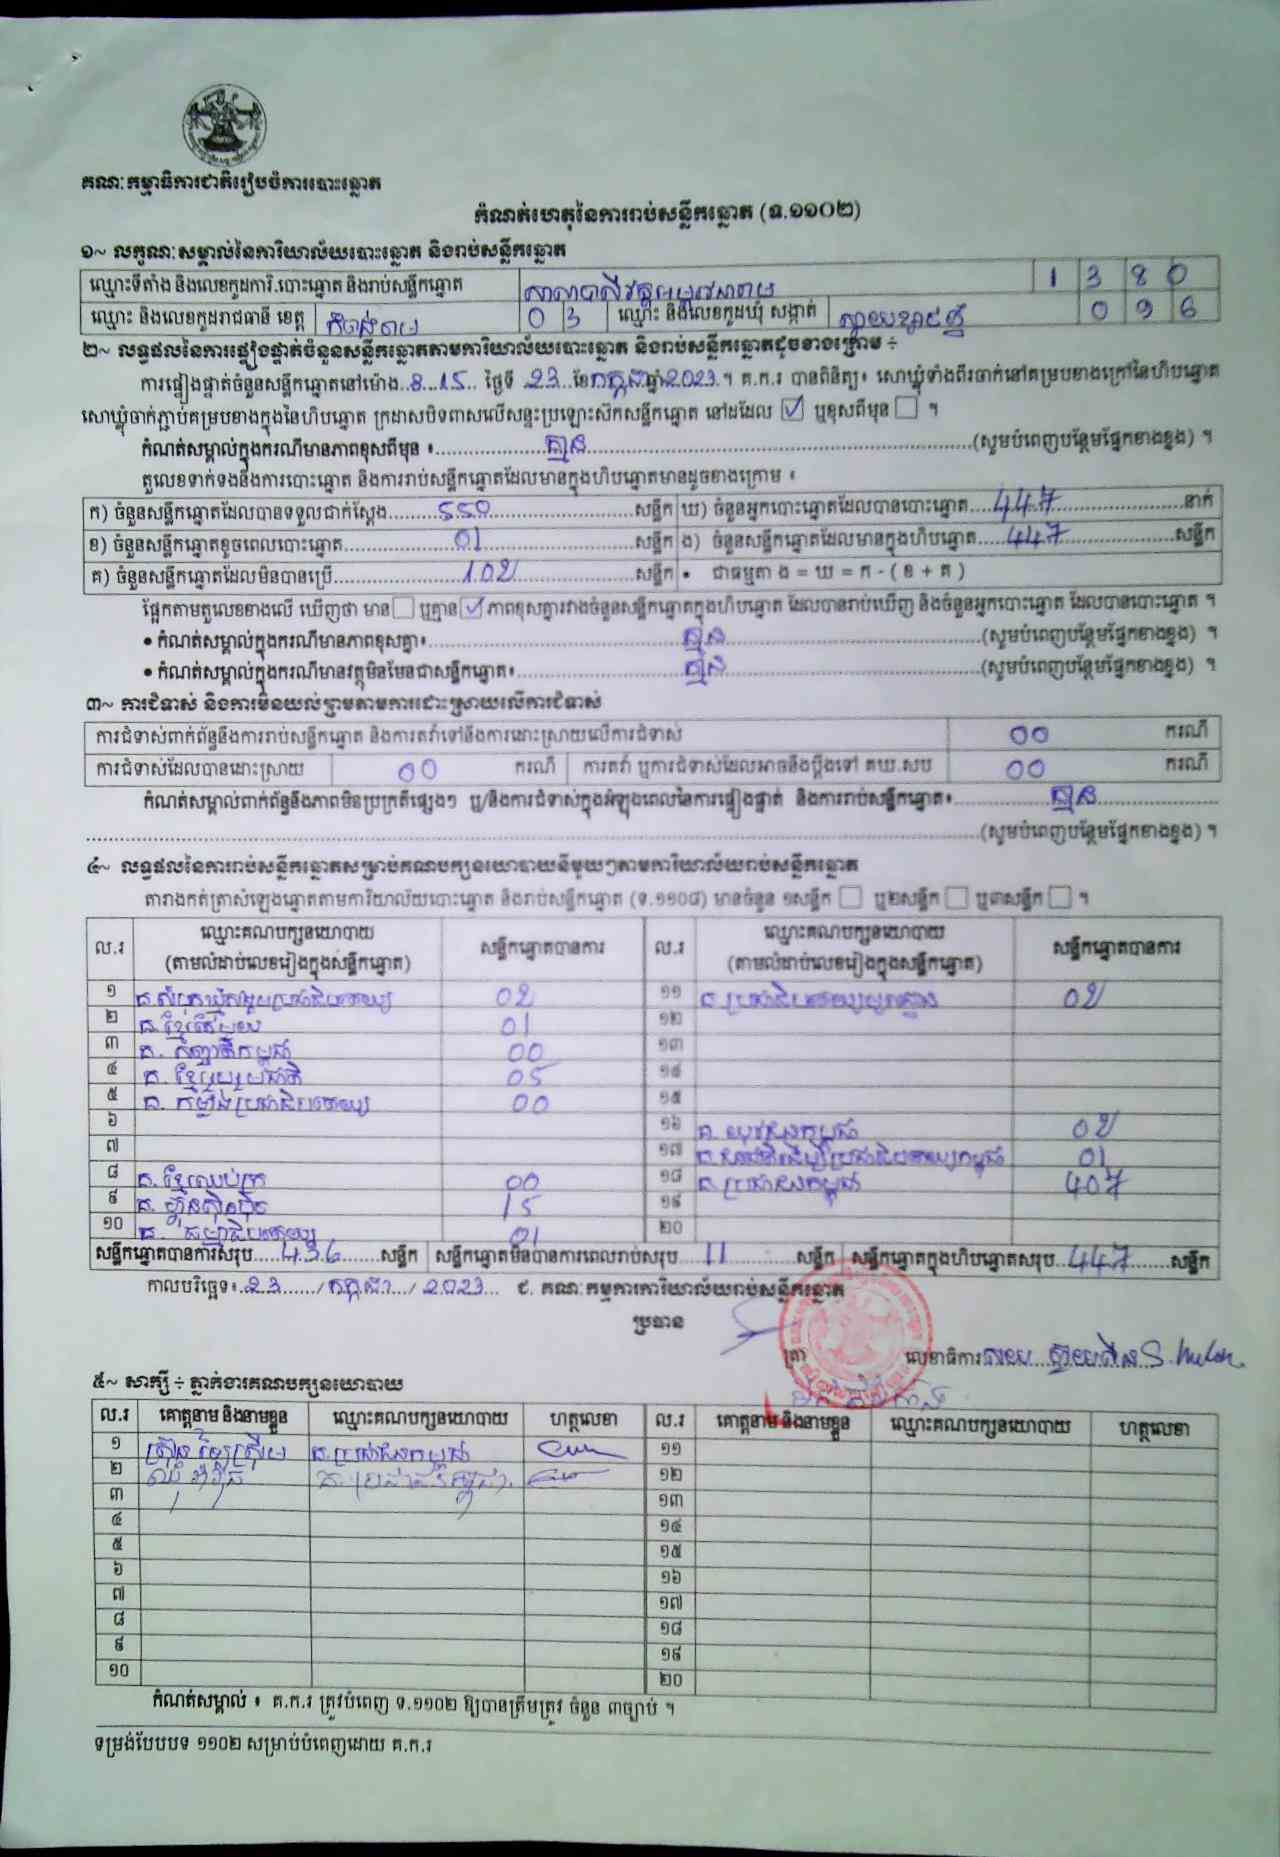 គណៈកម្មាធិការជាតិរៀបចំការបោះឆ្នោត
កំណត់ហេតុនៃការរាប់សន្លឹកឆ្នោត (ទ.១១០២)
១~ លក្ខណៈសម្គាល់នៃការិយាល័យបោះឆ្នោត និងរាប់សន្លឹកឆ្នោត
ឈ្មោះទីតាំង និងលេខកូដការិ.បោះឆ្នោត និងរាប់សន្លឹកឆ្នោត 1 3 8 0
ឈ្មោះ និងលេខកូដរាជធានី ខេត្ត កំពង់ចាម 0 3 ឈ្មោះ និងលេខកូដឃុំ សង្កាត់ 0 9 6
២~ លទ្ធផលនៃការផ្ទៀងផ្ទាត់ចំនួនសន្លឹកឆ្នោតតាមការិយាល័យបោះឆ្នោត និងរាប់សន្លឹកឆ្នោតដូចខាងក្រោម ÷
ការផ្ទៀងផ្ទាត់ចំនួនសន្លឹកឆ្នោតនៅម៉ោង..8..15.. ថ្ងៃទី .23..ខែកក្កដាឆ្នាំ2023.។ គ.ក.រ បានពិនិត្យ៖ សោឃ្លុំទាំងពីរចាក់នៅគម្របខាងក្រៅនៃហិបឆ្នោត
សោឃ្លុំចាក់ភ្ជាប់គម្របខាងក្នុងនៃហិបឆ្នោត ក្រដាសបិទពាសលើសន្ទះប្រឡោះស៊កសន្លឹកឆ្នោត នៅដដែល ☑ ឬខុសពីមុន ☐ ។
កំណត់សម្គាល់ក្នុងករណីមានភាពខុសពីមុន ៖......គ្មាន......(សូមបំពេញបន្ថែមផ្នែកខាងខ្នង) ។
តួលេខទាក់ទងនឹងការបោះឆ្នោត និងការរាប់សន្លឹកឆ្នោតដែលមានក្នុងហិបឆ្នោតមានដូចខាងក្រោម ៖
ក) ចំនួនសន្លឹកឆ្នោតដែលបានទទួលជាក់ស្តែង......550......សន្លឹក ឃ) ចំនួនអ្នកបោះឆ្នោតដែលបានបោះឆ្នោត....447......នាក់
ខ) ចំនួនសន្លឹកឆ្នោតខូចពេលបោះឆ្នោត......01......សន្លឹក ង) ចំនួនសន្លឹកឆ្នោតដែលមានក្នុងហិបឆ្នោត.....447......សន្លឹក
គ) ចំនួនសន្លឹកឆ្នោតដែលមិនបានប្រើ......102......សន្លឹក • ជាធម្មតា ង = ឃ = ក - ( ខ + គ )
ផ្អែកតាមតួលេខខាងលើ ឃើញថា មាន ☐ ឬគ្មាន ☑ ភាពខុសគ្នារវាងចំនួនសន្លឹកឆ្នោតក្នុងហិបឆ្នោត ដែលបានរាប់ឃើញ និងចំនួនអ្នកបោះឆ្នោត ដែលបានបោះឆ្នោត ។
• កំណត់សម្គាល់ក្នុងករណីមានភាពខុសគ្នា៖......គ្មាន......(សូមបំពេញបន្ថែមផ្នែកខាងខ្នង) ។
• កំណត់សម្គាល់ក្នុងករណីមានវត្ថុមិនមែនជាសន្លឹកឆ្នោត៖......គ្មាន......(សូមបំពេញបន្ថែមផ្នែកខាងខ្នង) ។
៣~ ការជំទាស់ និងការមិនយល់ព្រមតាមការដោះស្រាយលើការជំទាស់
ការជំទាស់ពាក់ព័ន្ធនឹងការរាប់សន្លឹកឆ្នោត និងការតវ៉ាទៅនឹងការដោះស្រាយលើការជំទាស់ 00 ករណី
ការជំទាស់ដែលបានដោះស្រាយ 00 ករណី ការតវ៉ា ឬការជំទាស់ដែលអាចនឹងប្តឹងទៅ គឃ.សប 00 ករណី
កំណត់សម្គាល់ពាក់ព័ន្ធនឹងភាពមិនប្រក្រតីផ្សេងៗ ឬ/និងការជំទាស់ក្នុងអំឡុងពេលនៃការផ្ទៀងផ្ទាត់ និងការរាប់សន្លឹកឆ្នោត៖......គ្មាន......
......(សូមបំពេញបន្ថែមផ្នែកខាងខ្នង) ។
៤~ លទ្ធផលនៃការរាប់សន្លឹកឆ្នោតសម្រាប់គណបក្សនយោបាយនីមួយៗតាមការិយាល័យរាប់សន្លឹកឆ្នោត
តារាងកត់ត្រាសំឡេងឆ្នោតតាមការិយាល័យបោះឆ្នោត និងរាប់សន្លឹកឆ្នោត (ទ.១១០៨) មានចំនួន ១សន្លឹក ☐ ឬ២សន្លឹក ☐ ឬ៣សន្លឹក ☐ ។
ល.រ ឈ្មោះគណបក្សនយោបាយ (តាមលំដាប់លេខរៀងក្នុងសន្លឹកឆ្នោត) សន្លឹកឆ្នោតបានការ ល.រ ឈ្មោះគណបក្សនយោបាយ (តាមលំដាប់លេខរៀងក្នុងសន្លឹកឆ្នោត) សន្លឹកឆ្នោតបានការ
១ គ.សំបុកឃ្មុំសង្គមប្រជាធិបតេយ្យ 02 ១១ គ.ប្រជាធិបតេយ្យមូលដ្ឋាន 02
២ គ.ខ្មែរតែមួយ 01 ១២
៣ គ. កញ្ញាជីកម្ពុជា 00 ១៣
៤ គ. ខ្មែររួបរួមជាតិ 05 ១៤
៥ គ. កម្លាំងប្រជាធិបតេយ្យ 00 ១៥
៦ ១៦ គ. យុវជនកម្ពុជា 02
៧ ១៧ គ.សំឡេងដើម្បីប្រជាធិបតេយ្យកម្ពុជា 01
៨ គ. ខ្មែរឈប់ក្រ 00 ១៨ គ.ប្រជាជនកម្ពុជា 407
៩ គ. ហ្វ៊ុនស៊ិនប៉ិច 15 ១៩
១០ គ. ធម្មាធិបតេយ្យ 01 ២០
សន្លឹកឆ្នោតបានការសរុប....436......សន្លឹក សន្លឹកឆ្នោតមិនបានការពេលរាប់សរុប....11......សន្លឹក សន្លឹកឆ្នោតក្នុងហិបឆ្នោតសរុប..447......សន្លឹក
កាលបរិច្ឆេទ៖.23....../កក្កដា.../ 2023... ជ. គណៈកម្មការការិយាល័យរាប់សន្លឹកឆ្នោត
ប្រធាន
ត្រា លេខាធិការ
៥~ សាក្សី ÷ ភ្នាក់ងារគណបក្សនយោបាយ
ល.រ គោត្តនាម និងនាមខ្លួន ឈ្មោះគណបក្សនយោបាយ ហត្ថលេខា ល.រ គោត្តនាម និងនាមខ្លួន ឈ្មោះគណបក្សនយោបាយ ហត្ថលេខា
១ គ.ប្រជាជនកម្ពុជា ១១
២ គ.ប្រជាជនកម្ពុជា. ១២
៣ ១៣
៤ ១៤
៥ ១៥
៦ ១៦
៧ ១៧
៨ ១៨
៩ ១៩
១០ ២០
កំណត់សម្គាល់ ៖ គ.ក.រ ត្រូវបំពេញ ទ.១១០២ ឱ្យបានត្រឹមត្រូវ ចំនួន ៣ច្បាប់ ។
ទម្រង់បែបបទ ១១០២ សម្រាប់បំពេញដោយ គ.ក.រ